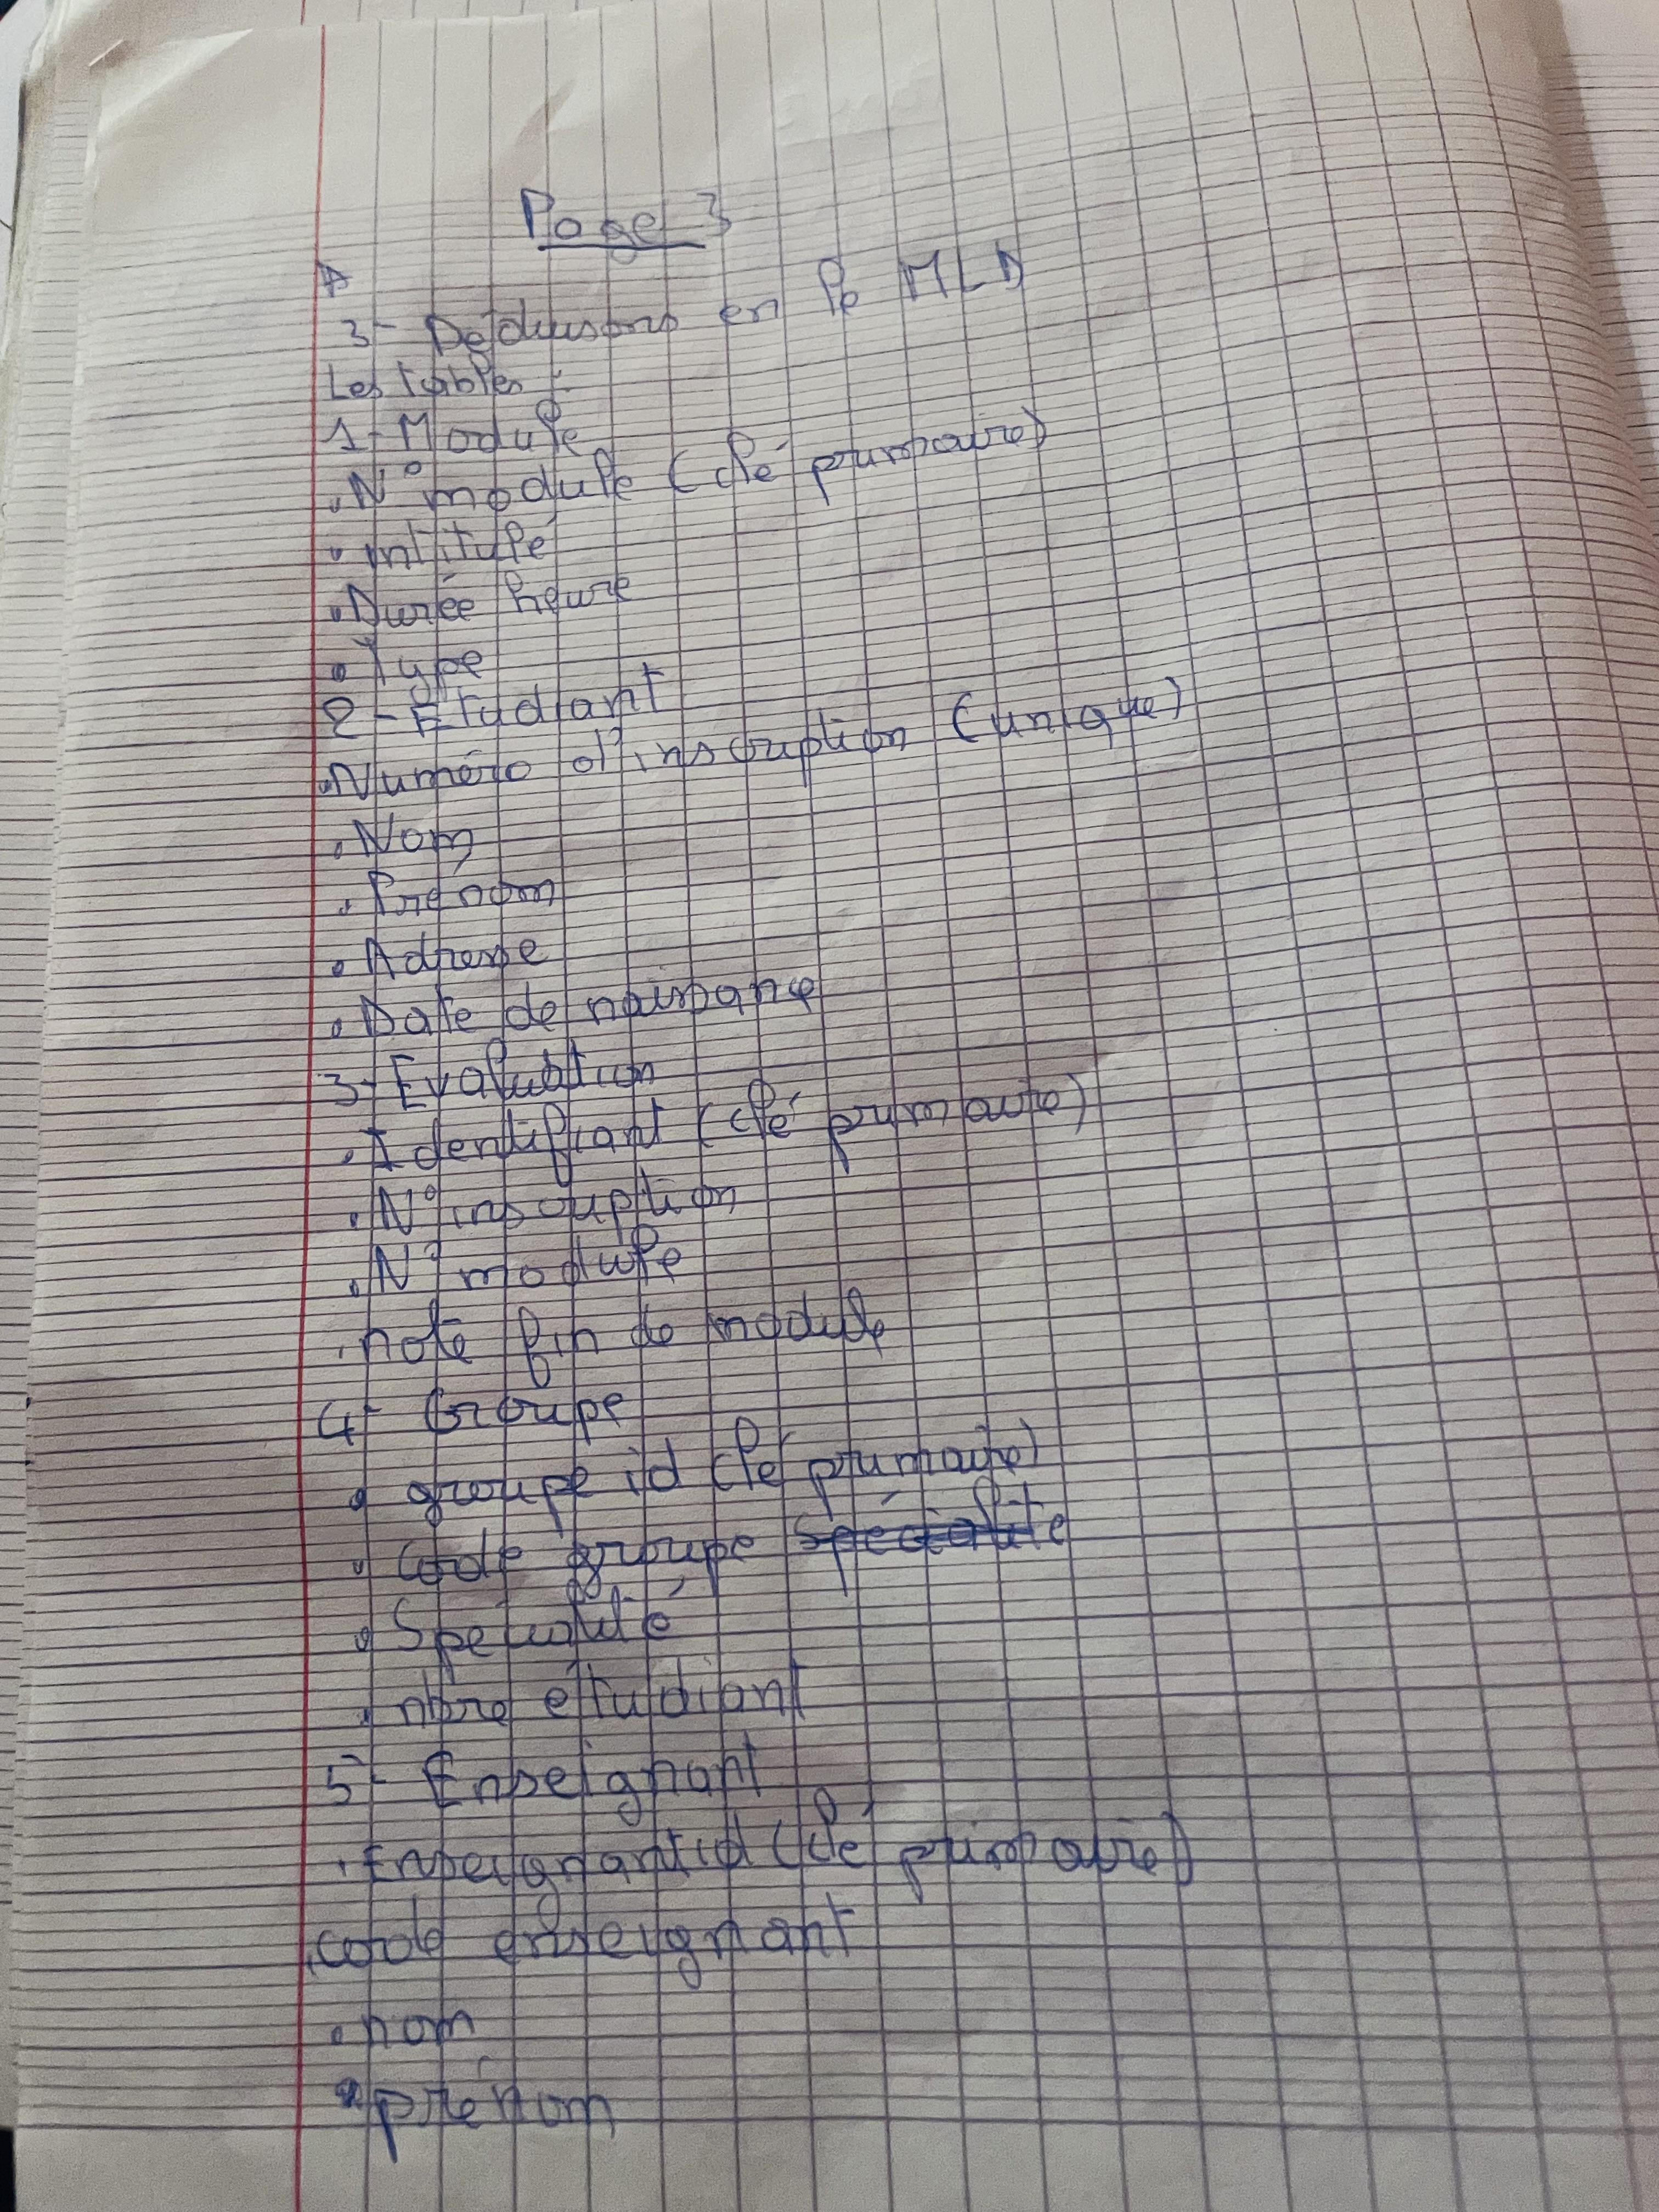 Page 3
A
3- Déduisons en le MLD
Les tables :
1- Module
. N° module (clé primaire)
. intitulé
. Durée heure
. Type
2- Etudiant
. Numéro d'inscription (unique)
. Nom
. Prénom
. Adresse
. Date de naissance
3- Evaluation
. Identifiant (clé primaire)
. N° inscription
. N° module
. note fin de module
4- Groupe
. groupe id (clé primaire)
. code groupe spécialité
. Spécialité
. nbre étudiant
5- Enseignant
. Enseignant id (clé primaire)
. code enseignant
. nom
. prénom